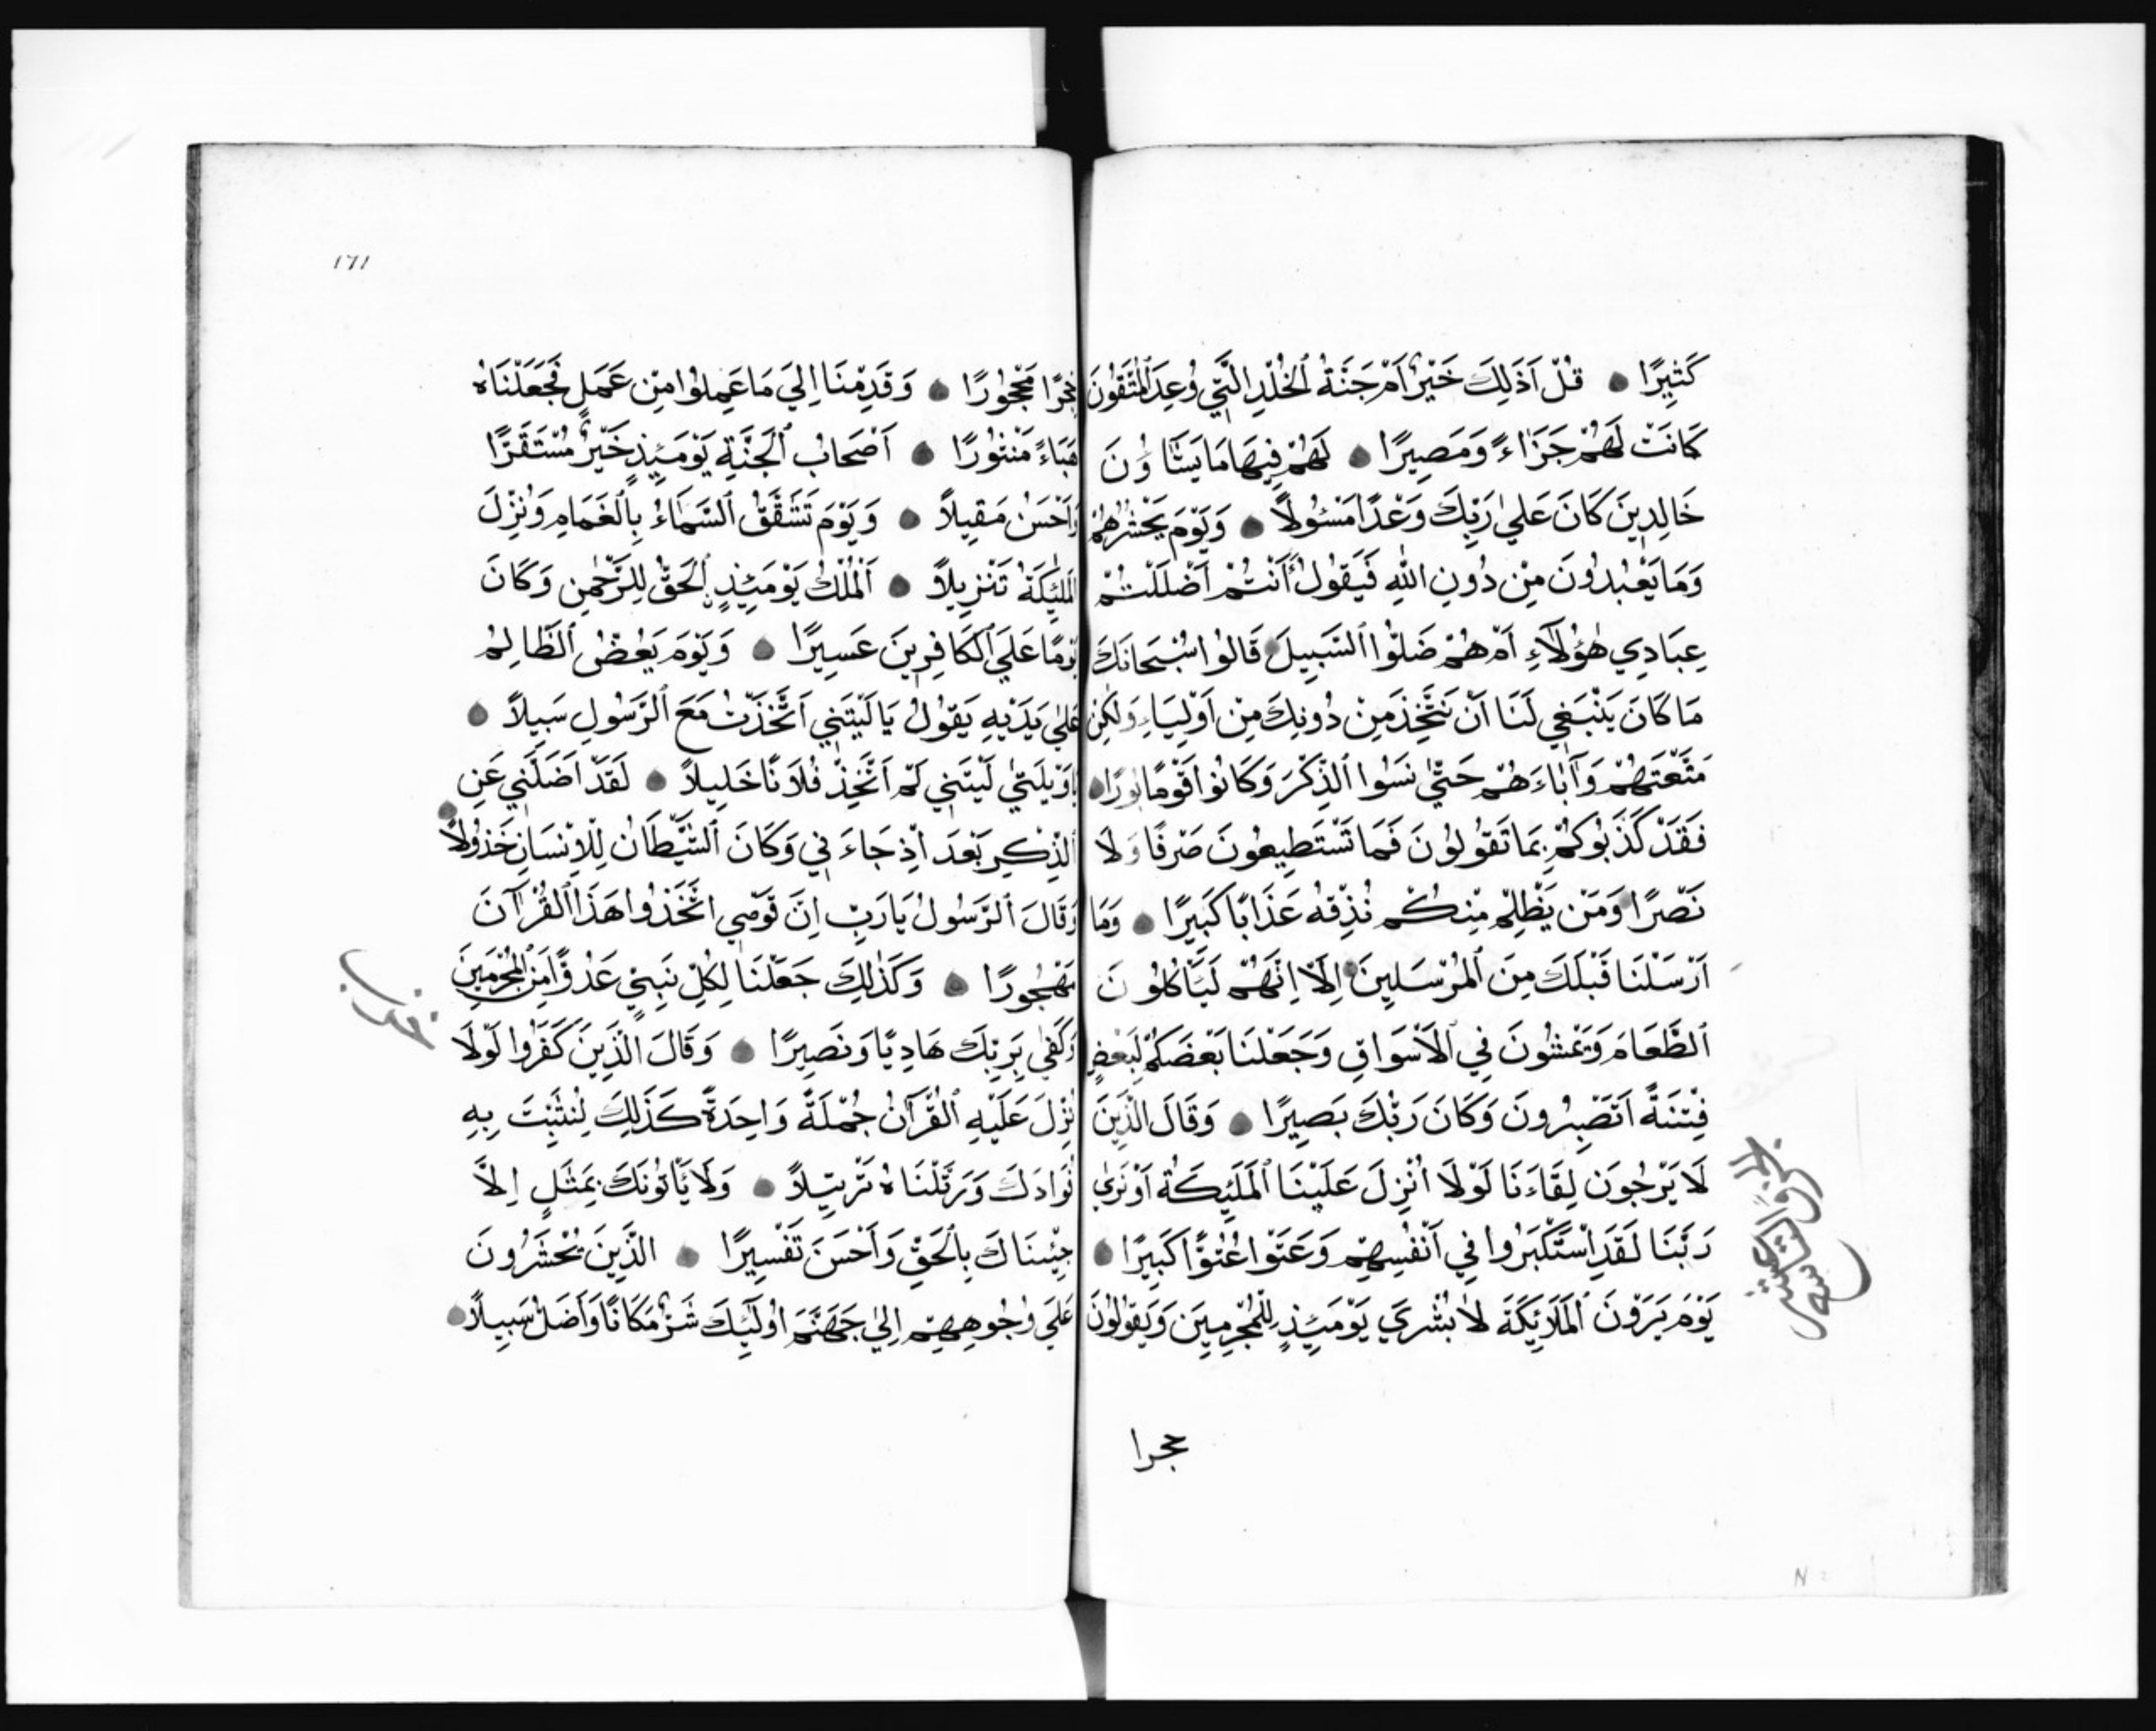 كَثِيرًا قُلْ اَذَلِكَ خَيْرٌ اَمْ جَنَّةُ ٱلْخُلْدِ الَّتِي وُعِدَ ٱلْمُتَّقُونَ
كَانَتْ لَهُمْ جَزَاءً وَمَصِيرًا لَهُمْ فِيهَا مَا يَشَاؤُنَ
خَالِدِينَ كَانَ عَلَى رَبِّكَ وَعْدًا مَسْئُولاً وَيَوْمَ يَحْشُرُهُمْ
وَمَا يَعْبُدُونَ مِنْ دُونِ اللهِ فَيَقُولُ ءَاَنْتُمْ اَضْلَلْتُمْ
عِبَادِي هٰؤُلَآءِ اَمْ هُمْ ضَلُّوا ٱلسَّبِيلَ قَالُوا سُبْحَانَكَ
مَا كَانَ يَنْبَغِي لَنَا اَنْ نَتَّخِذَ مِنْ دُونِكَ مِنْ اَوْلِيَاءِ وَلَكِنْ
مَتَّعْتَهُمْ وَآبَاءَهُمْ حَتَّى نَسُوا ٱلذِّكْرَ وَكَانُوا قَوْمًا بُورًا
فَقَدْ كَذَّبُوكُمْ بِمَا تَقُولُونَ فَمَا تَسْتَطِيعُونَ صَرْفًا وَلَا
نَصْرًا وَمَنْ يَظْلِمْ مِنْكُمْ نُذِقْهُ عَذَابًا كَبِيرًا وَمَا
اَرْسَلْنَا قَبْلَكَ مِنَ ٱلْمُرْسَلِينَ اِلَّا اِنَّهُمْ لَيَأْكُلُونَ
ٱلطَّعَامَ وَيَمْشُونَ فِي ٱلْاَسْوَاقِ وَجَعَلْنَا بَعْضَكُمْ لِبَعْضٍ
فِتْنَةً اَتَصْبِرُونَ وَكَانَ رَبُّكَ بَصِيرًا وَقَالَ الَّذِينَ
لَا يَرْجُونَ لِقَاءَنَا لَوْلَا اُنْزِلَ عَلَيْنَا ٱلْمَلَئِكَةُ اَوْ نَرَى
رَبَّنَا لَقَدِ ٱسْتَكْبَرُوا فِي اَنْفُسِهِمْ وَعَتَوْا عُتُوًّا كَبِيرًا
يَوْمَ يَرَوْنَ ٱلْمَلَائِكَةَ لَا بُشْرَى يَوْمَئِذٍ لِلْمُجْرِمِينَ وَيَقُولُونَ
الجزؤ التاسع عشر
حجرا
١٦١
حِجْرًا مَحْجُورًا وَقَدِمْنَا اِلَى مَا عَمِلُوا مِنْ عَمَلٍ فَجَعَلْنَاهُ
هَبَاءً مَنْثُورًا اَصْحَابُ ٱلْجَنَّةِ يَوْمَئِذٍ خَيْرٌ مُسْتَقَرًّا
وَاَحْسَنُ مَقِيلاً وَيَوْمَ تَشَقَّقُ ٱلسَّمَاءُ بِٱلْغَمَامِ وَنُزِّلَ
ٱلْمَلٰئِكَةُ تَنْزِيلاً اَلْمُلْكُ يَوْمَئِذٍ ٱلْحَقُّ لِلرَّحْمٰنِ وَكَانَ
يَوْمًا عَلَى ٱلْكَافِرِينَ عَسِيرًا وَيَوْمَ يَعَضُّ ٱلظَّالِمُ
عَلَى يَدَيْهِ يَقُولُ يَا لَيْتَنِي اَتَّخَذْتُ مَعَ ٱلرَّسُولِ سَبِيلاً
يَا وَيْلَتَى لَيْتَنِي لَمْ اَتَّخِذْ فُلَانًا خَلِيلاً لَقَدْ اَضَلَّنِي عَنِ
ٱلذِّكْرِ بَعْدَ اِذْ جَاءَنِي وَكَانَ ٱلشَّيْطَانُ لِلْاِنْسَانِ خَذُولاً
وَقَالَ ٱلرَّسُولُ يَا رَبِّ اِنَّ قَوْمِي اتَّخَذُوا هَذَا ٱلْقُرْآنَ
مَهْجُورًا وَكَذٰلِكَ جَعَلْنَا لِكُلِّ نَبِيٍّ عَدُوًّا مِنَ ٱلْمُجْرِمِينَ
وَكَفَى بِرَبِّكَ هَادِيًا وَنَصِيرًا وَقَالَ الَّذِينَ كَفَرُوا لَوْلَا
نُزِّلَ عَلَيْهِ ٱلْقُرْآنُ جُمْلَةً وَاحِدَةً كَذَلِكَ لِنُثَبِّتَ بِهِ
فُوَادَكَ وَرَتَّلْنَاهُ تَرْتِيلاً وَلَا يَأْتُونَكَ بِمَثَلٍ اِلَّا
جِئْنَاكَ بِٱلْحَقِّ وَاَحْسَنَ تَفْسِيرًا الَّذِينَ يُحْشَرُونَ
عَلَى وُجُوهِهِمْ اِلَى جَهَنَّمَ اُولَئِكَ شَرٌّ مَكَانًا وَاَضَلُّ سَبِيلاً